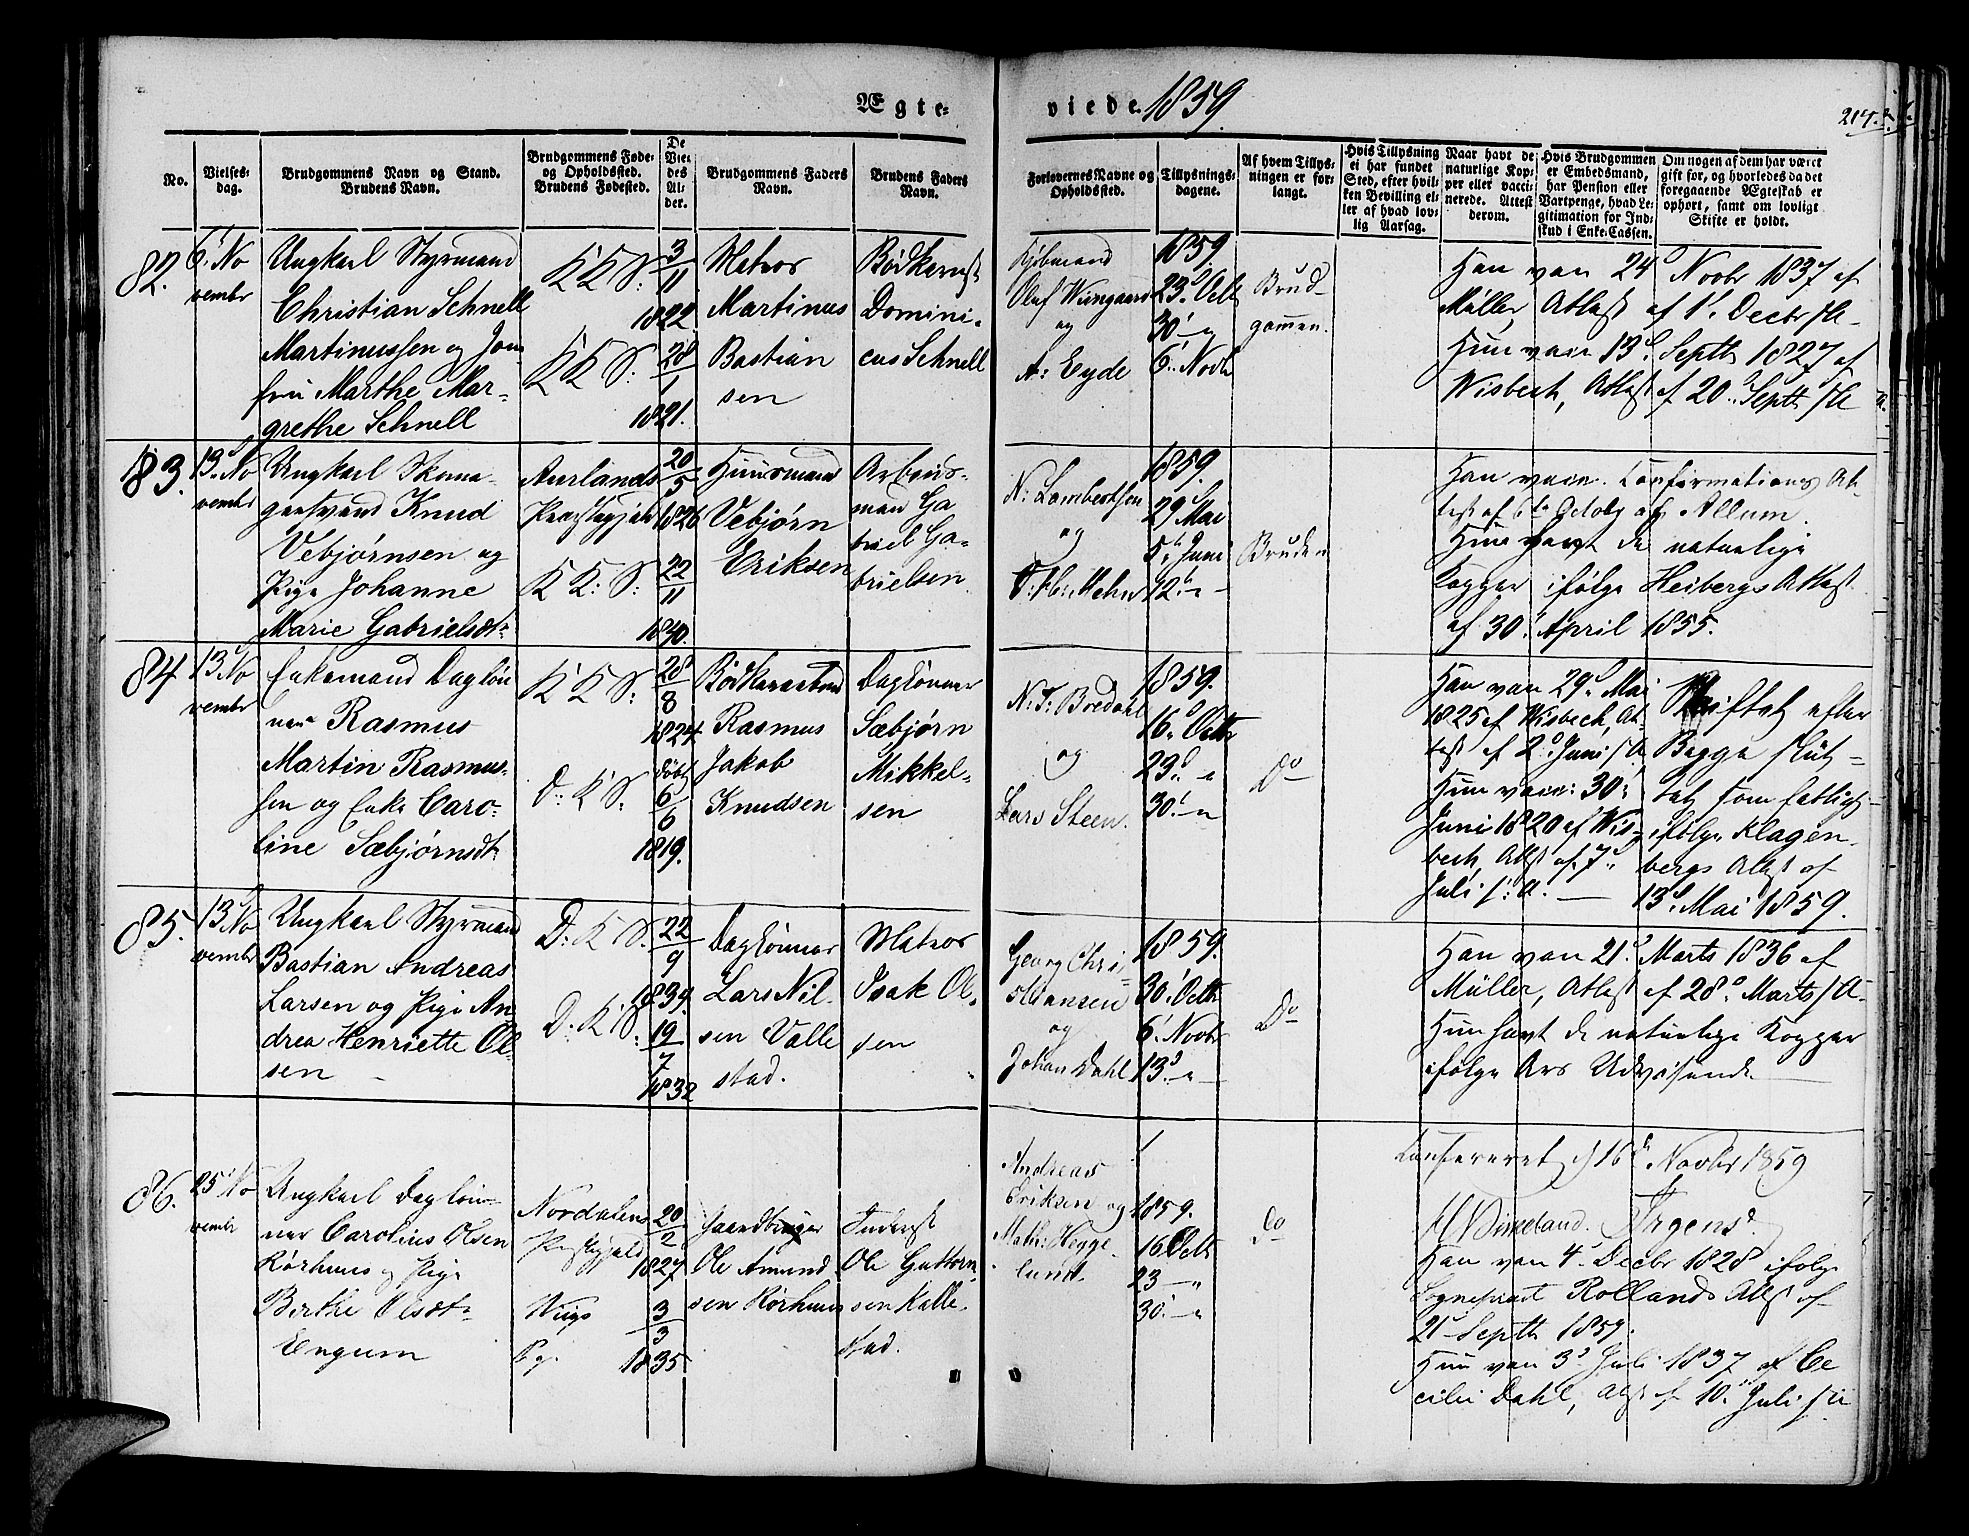 Ægte-
viede 1859.
214.
No.
Vielses-
dag.
Brudgommens Navn og Stand.
Brudens Navn.
Brudgommens Føde-
og Opholdssted.
Brudens Fødested.
De
Vie-
des
Al-
der.
Brudgommens Faders
Navn.
Brudens Faders
Navn.
Forlovernes Navne og
Opholdssted.
Tillysnings-
dagene.
Af hvem Tillys-
ningen er for-
langt.
Hvis Tillysning
ei har fundet
Sted, efter hvil-
ken Bevilling el-
ler af hvad lov-
lig Aarsag.
Naar havt de
naturlige Kop-
per eller vacci-
nerede. Attest
derom.
Hvis Brudgommen
er Embedsmand,
har Pension eller
Vartpenge, hvad Le-
gitimation for Ind-
skud i Enke-Cassen.
Om nogen af dem har været
gift før, og hvorledes da det
foregaaende Ægteskab er
ophørt, samt om lovligt
Skifte er holdt.
82.
6' No
vember
Ungkarl Styrmand
Christian Schnell
Martinussen og Jom
fru Marthe Mar-
grethe Schnell
K K S:
K K S:
3/11
1822
28/1
1821.
Matros
Martinus
Bastian
sen
Bødkermst
Domini-
cus Schnell
Kjøbmand
Oluf Wiingaard
og
A: Eyde
1859.
23d Octb
30' — "
6' Novbr
Brud-
gommen.
Han vacc 24d Novbr 1837 af
Müller, Attest af 1' Decbr s. A.
Hun vacc 13d Septb 1827 af
Wisbech, Attest af 20d Septb s. A.
83.
13d No
vember
Ungkarl Skoma
gersvend Knud
Vebjørnsen og
Pige Johanne
Marie Gabrielsdt
Aurlands
Præstegjeld
K K: S:
20/5
1826
22/11
1840.
Huusmand
Vebjørn
Eriksen
Arbeids-
mand Ga
briel Ga-
brielsen
N: Lambertsen
og
1859.
29d Mai
5te Juni
12' — "
Bruden
Han vacc. Confirmations At-
test af 6te Octobr af Allum.
Hun havt de naturlige
Kopper ifølge Heibergs Attest
af 30' April 1855.
84.
13d No
vember
Enkemand Dagløn
ner Rasmus
Martin Rasmus-
sen og Enke Caro-
line Sæbjørnsdt
K K S:
D: K S:
28/8
1824
døbt
6/6
1819.
Rasmus
Jakob
Knudsen
Daglønner
Sæbjørn
Mikkel-
sen
N: T: Bredahl
og
Lars Steen.
1859.
16d Octb
23d — "
30' — "
Do
Han vacc 29d Mai
1825 af Wisbech, At-
test af 2d Juni s. A.
Hun vacc: 30'
Juni 1820 af Wis-
bech, Attest af 7d
Juli s: A. —
Skiftet efter
Begge slut-
tet som fatligt
ifølge Klagen-
bergs Attest af
13d Mai 1859.
85.
13d No
vember
Ungkarl Styrmand
Bastian Andreas
Larsen og Pige An-
drea Henriette Ol-
sen —
D: K S:
D: K: S:
22/9
1839.
19/7
1832
Daglønner
Lars Nil-
sen Valle
stad.
Matros
Isak Ol-
sen
Georg Chri-
stiansen
og
Johan Dahl
1859.
30' Octb
6' Novbr
13d — "
Do
Han vacc 21d Marts 1836 af
Müller, Attest af 28d Marts s. A.
Hun havt de naturlige Kopper
ifølge Ars Udvisende
86.
25' No
vember
Ungkarl Dagløn-
ner Carolius Olsen
Rørhuus og Pige
Berthe Olsdt
Engum
Nordalens
Prstgjeld
Wiigs
Pg.
20/2
1827
3/3
1835.
Jaardbruger
Ole Amund-
sen Rørhuus
Inderst
Ole Guttorm-
sen Kalle-
stad.
Andreas
Eriksen og
Math: Hegge-
lund.
1859.
16d Octb
23 — "
30' — "
Do
Confereret d 16d Novbr 1859
Irgens
Han vacc 4d Decbr 1828 ifølge
Sogneprest Rollands Attest af
21' Septb 1859.
Hun vacc 3d Juli 1837 af Ce
cilie Dahl, Attest af 10d Juli s. A